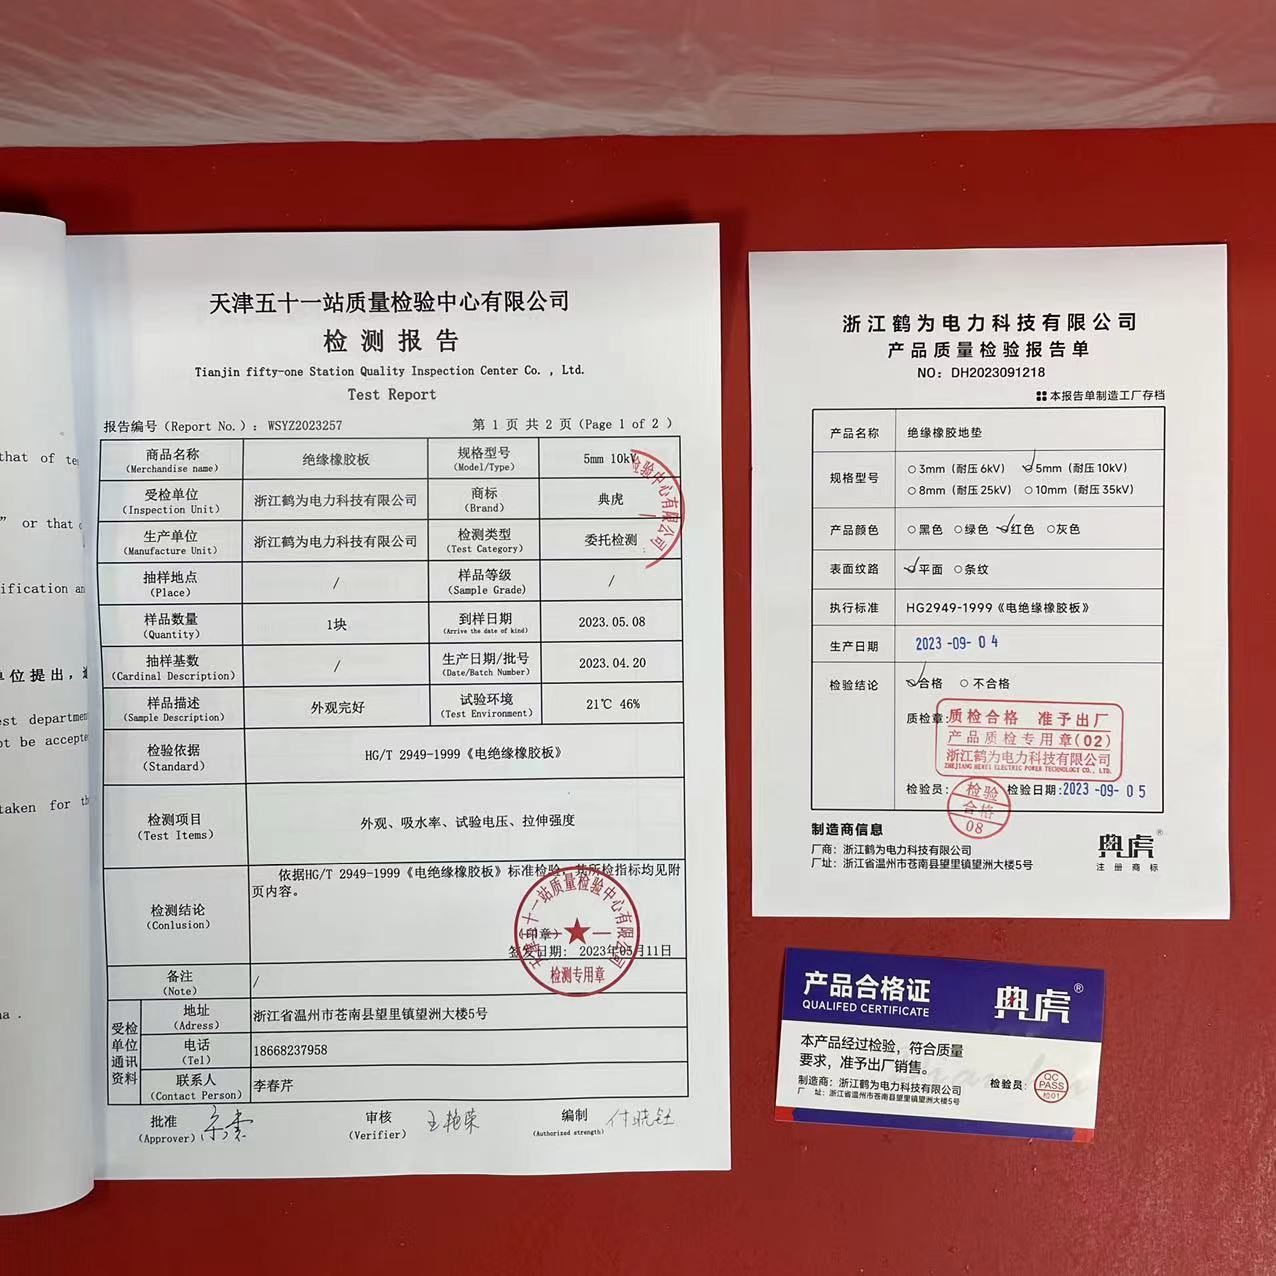 that of te
” or that
ification an
单位提出，
est departmen
ot be accepte
taken for th
na .
天津五十一站质量检验中心有限公司
检测报告
Tianjin fifty-one Station Quality Inspection Center Co. , Ltd.
Test Report
报告编号（Report No.）：WSYZ2023257 第 1 页 共 2 页（Page 1 of 2 ）
商品名称 (Merchandise name) 绝缘橡胶板 规格型号 (Model/Type) 5mm 10kV
受检单位 (Inspection Unit) 浙江鹤为电力科技有限公司 商标 (Brand) 典虎
生产单位 (Manufacture Unit) 浙江鹤为电力科技有限公司 检测类型 (Test Category) 委托检测
抽样地点 (Place) / 样品等级 (Sample Grade) /
样品数量 (Quantity) 1块 到样日期 (Arrive the date of kind) 2023.05.08
抽样基数 (Cardinal Description) / 生产日期/批号 (Date/Batch Number) 2023.04.20
样品描述 (Sample Description) 外观完好 试验环境 (Test Environment) 21℃ 46%
检验依据 (Standard) HG/T 2949-1999《电绝缘橡胶板》
检测项目 (Test Items) 外观、吸水率、试验电压、拉伸强度
依据HG/T 2949-1999《电绝缘橡胶板》标准检验，其所检指标均见附
页内容。
检测结论
(Conlusion)
（印章）
签发日期： 2023年05月11日
天津五十一站质量检验中心有限公司
检测专用章
检验中心有限公司
备注 (Note) /
受检单位通讯资料
地址 (Adress) 浙江省温州市苍南县望里镇望洲大楼5号
电话 (Tel) 18668237958
联系人 (Contact Person) 李春芹
批准 (Approver) 审核 (Verifier) 王艳荣 编制 (Authorized strength) 付晓钰
浙江鹤为电力科技有限公司
产品质量检验报告单
NO：DH2023091218
本报告单制造工厂存档
产品名称 绝缘橡胶地垫
规格型号 ○3mm（耐压 6kV） ○5mm（耐压 10kV）
○8mm（耐压 25kV） ○10mm（耐压 35kV）
产品颜色 ○黑色 ○绿色 ○红色 ○灰色
表面纹路 ○平面 ○条纹
执行标准 HG2949-1999《电绝缘橡胶板》
生产日期 2023 -09- 04
检验结论 ○合格 ○不合格
质检章：
质检合格 准予出厂
产品质检专用章(02)
浙江鹤为电力科技有限公司
ZHEJIANG HEWEI ELECTRIC POWER TECHNOLOGY CO., LTD.
检验员： 检验日期：2023 -09- 05
检验
合格
08
制造商信息
厂商：浙江鹤为电力科技有限公司
厂址：浙江省温州市苍南县望里镇望洲大楼5号
典虎®
注册商标
产品合格证
QUALIFED CERTIFICATE
典虎®
本产品经过检验，符合质量
要求，准予出厂销售。
制造商：浙江鹤为电力科技有限公司
厂 址：浙江省温州市苍南县望里镇望洲大楼5号
检验员：
QC
PASS
检01